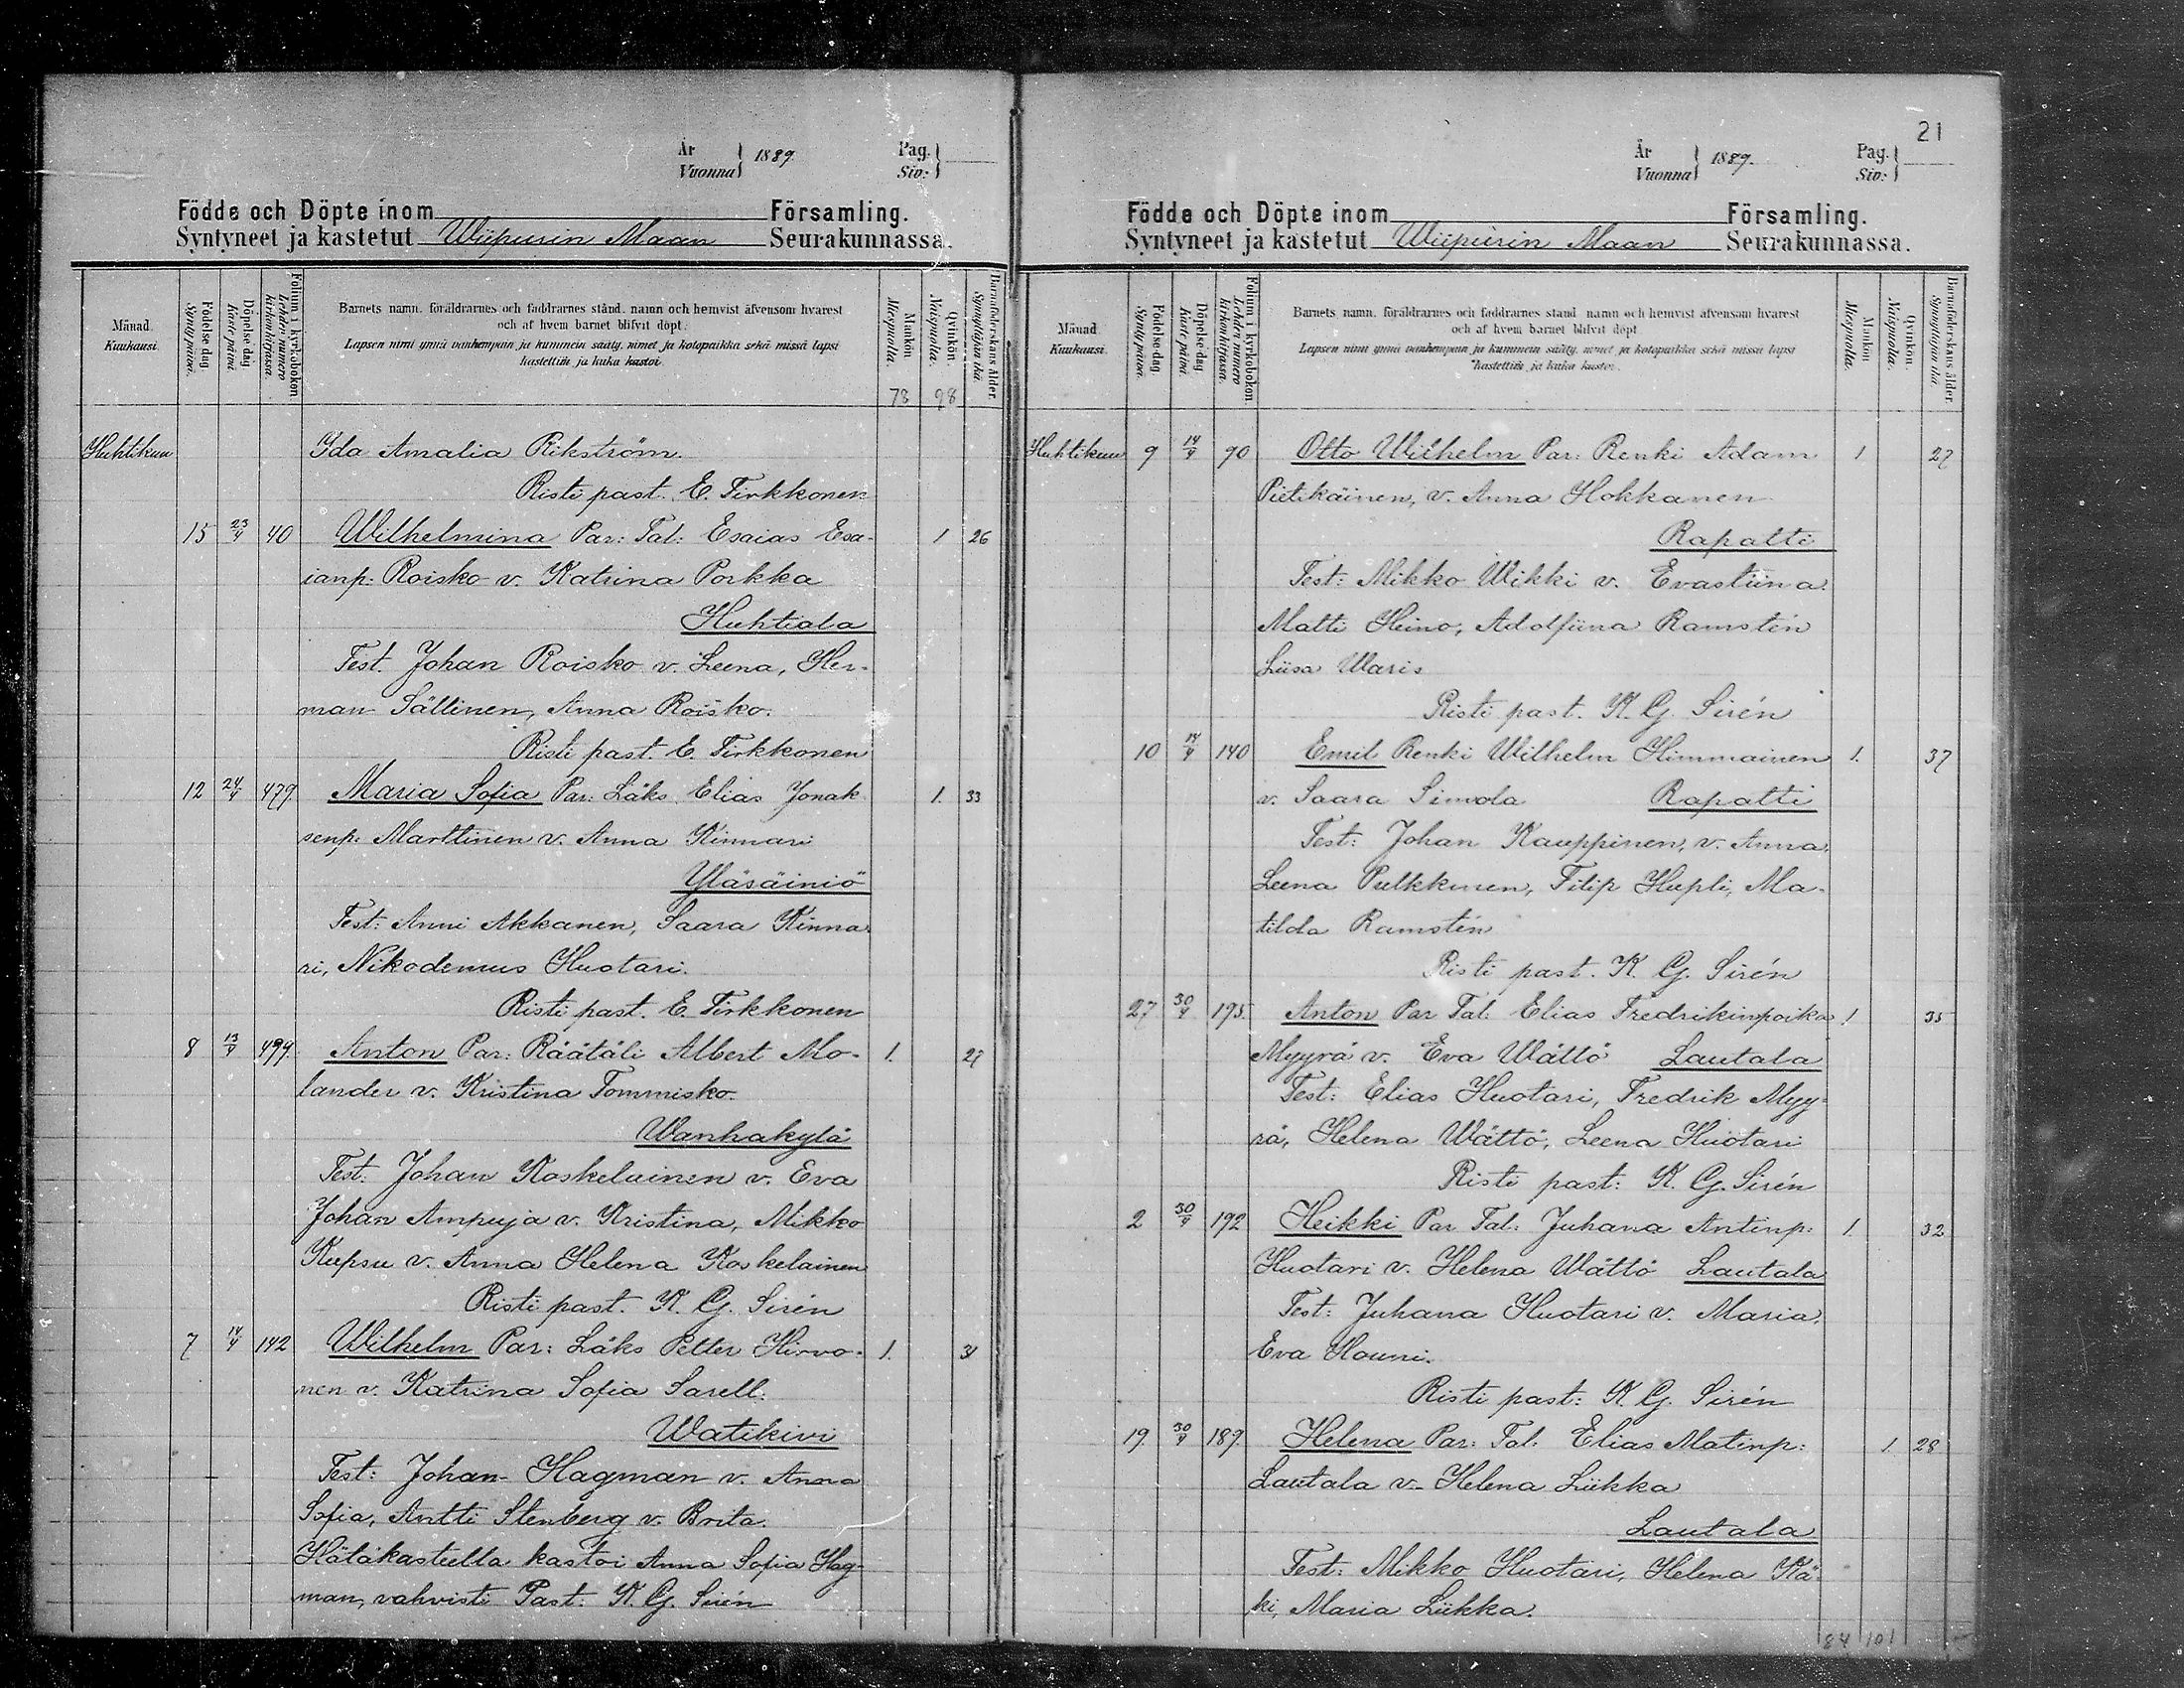 År
Vuonna
1889.
Pag.
Siv:
Födde och Döpte inom Församling.
Syntyneet ja kastetut Wiipurin Maan Seurakunnassa.
Månad. Kuukausi.
Födelse dag. Synty päivä.
Döpelse dag. Kaste päivä.
Folium i kyrkoboken. Lehden numero kirkonkirjassa.
Barnets namn, föräldrarnes och faddrarnes stånd, namn och hemvist äfvensom hvarest
och af hvem barnet blifvit döpt.
Lapsen nimi ynnä vanhempain ja kummein sääty, nimet ja kotopaikka sekä missä lapsi
kastettiin ja kuka kastoi.
Mankön. Miespuolta.
Qvinkön. Naispuolta.
Barnaföderskans ålder. Synnyttäjän ikä.
78 98
Huhtikuu Ida Amalia Rikström.
Risti past. E. Tirkkonen
15 23/4 40 Wilhelmina Par: Tal: Esaias Esa- 1 26
ianp: Roisko v. Katrina Porkka
Huhtiala
Test. Johan Roisko v. Leena, Her-
man Sällinen, Anna Roisko.
Risti past. E. Tirkkonen
12 24/4 479. Maria Sofia Par: Läks. Elias Jonak 1. 33
senp. Marttinen v. Anna Kinnari
Yläsäiniö
Test: Anni Akkanen, Saara Kinna
ri, Nikodemus Huotari.
Risti past. E. Tirkkonen
8 13/4 499. Anton Par: Räätäli Albert Mo- 1. 27
lander v. Kristina Tommisko.
Wanhakylä
Test: Johan Koskelainen v. Eva
Johan Ampuja v. Kristina, Mikko
Kupsu v. Anna Helena Koskelainen
Risti past. K. G. Sirén
7 14/4 142 Wilhelm Par: Läks Petter Hirvo- 1. 31
nen v. Katrina Sofia Sarell.
Watikivi
Test: Johan Hagman v. Anna
Sofia, Antti Stenberg v. Brita.
Hätäkasteella kastoi Anna Sofia Hag-
man, vahvisti Past. K. G. Sirén
21
År
Vuonna
1889.
Pag.
Siv:
Födde och Döpte inom Församling.
Syntyneet ja kastetut Wiipurin Maan Seurakunnassa.
Månad. Kuukausi.
Födelse dag. Synty päivä.
Döpelse dag. Kaste päivä.
Folium i kyrkoboken. Lehden numero kirkonkirjassa.
Barnets namn, föräldrarnes och faddrarnes stånd, namn och hemvist äfvensom hvarest
och af hvem barnet blifvit döpt.
Lapsen nimi ynnä vanhempain ja kummein sääty, nimet ja kotopaikka sekä missä lapsi
kastettiin ja kuka kastoi.
Mankön. Miespuolta.
Qvinkön. Naispuolta.
Barnaföderskans ålder. Synnyttäjän ikä.
Huhtikuu 9 14/4 90 Otto Wilhelm Par: Renki Adam 1 27
Pietikäinen, v. Anna Hokkanen
Rapatti
Test: Mikko Wikki v. Evastiina.
Matti Heino, Adolfiina Ramstén
Liisa Waris
Risti past. K. G. Sirén
10 14/4 140 Emil Renki Wilhelm Himmainen 1. 37
v. Saara Simola Rapatti
Test: Johan Kauppinen, v. Anna.
Leena Pulkkinen, Filip Hupli, Ma-
tilda Ramstén
Risti past. K. G. Sirén
27 30/4 195. Anton Par Tal: Elias Fredrikinpoika 1 35
Myyrä v. Eva Wättö Lautala
Test: Elias Huotari, Fredrik Myy-
rä, Helena Wättö, Leena Huotari
Risti past: K. G. Sirén
2 30/4 192 Heikki Par Tal: Juhana Antinp: 1. 32
Huotari v. Helena Wättö Lautala
Test: Juhana Huotari v. Maria.
Eva Houni.
Risti past: K. G. Sirén
19. 30/4 189. Helena Par: Tal. Elias Matinp: 1. 28
Lautala v. Helena Liikka
Lautala
Test: Mikko Huotari, Helena Kä
ki, Maria Liikka.
84 101